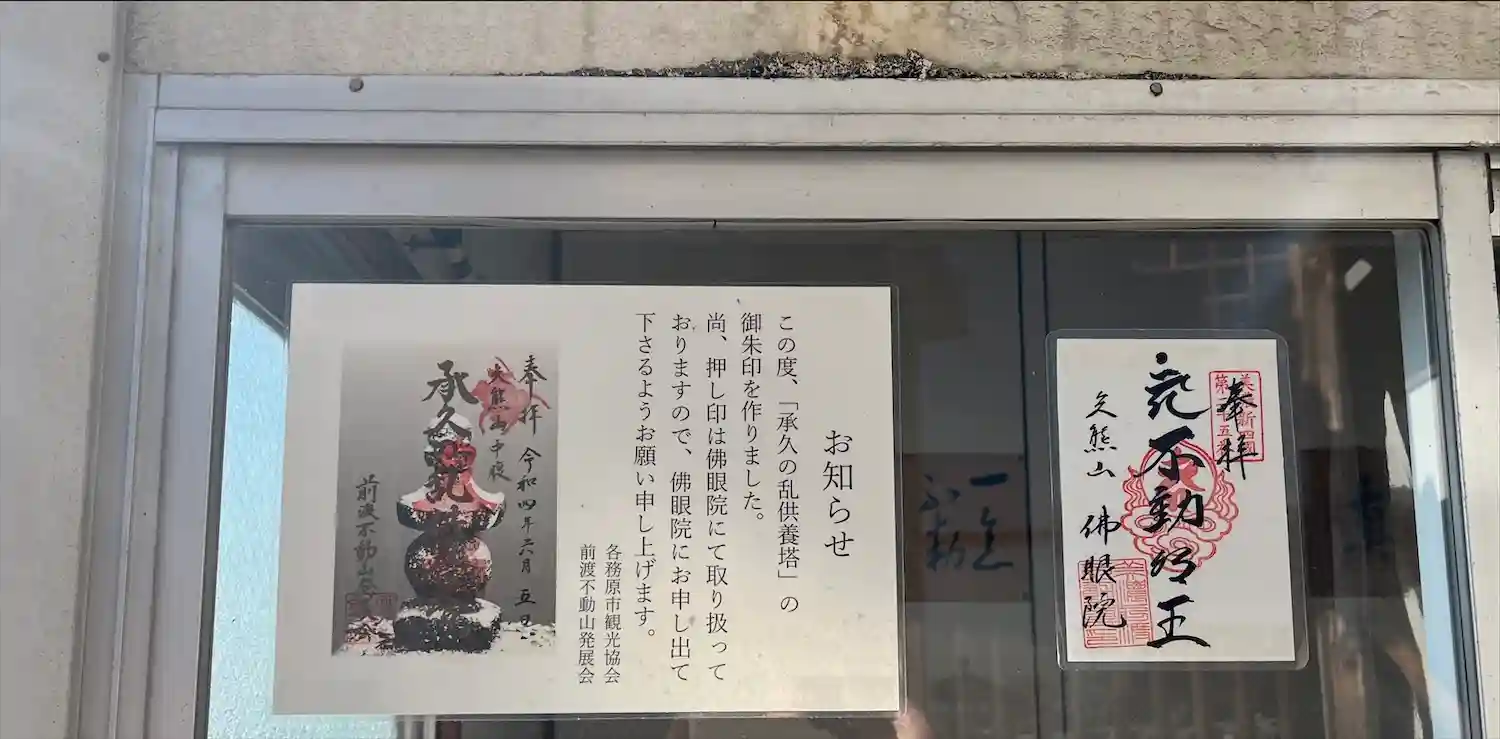 奉拝
不動明王
久熊山 佛眼院
お知らせ
この度、「承久の乱供養塔」の
御朱印を作りました。
尚、押し印は佛眼院にて取り扱って
おりますので、佛眼院にお申し出て
下さるようお願い申し上げます。
各務原市観光協会
前渡不動山発展会
奉拝 令和四年六月五日
大熊山中腹
承久
前渡不動山